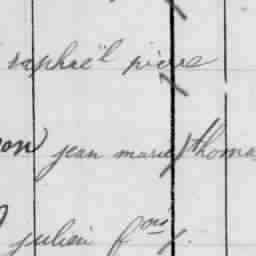 raphaël pierre
on jean marie thoma
julien f.ois